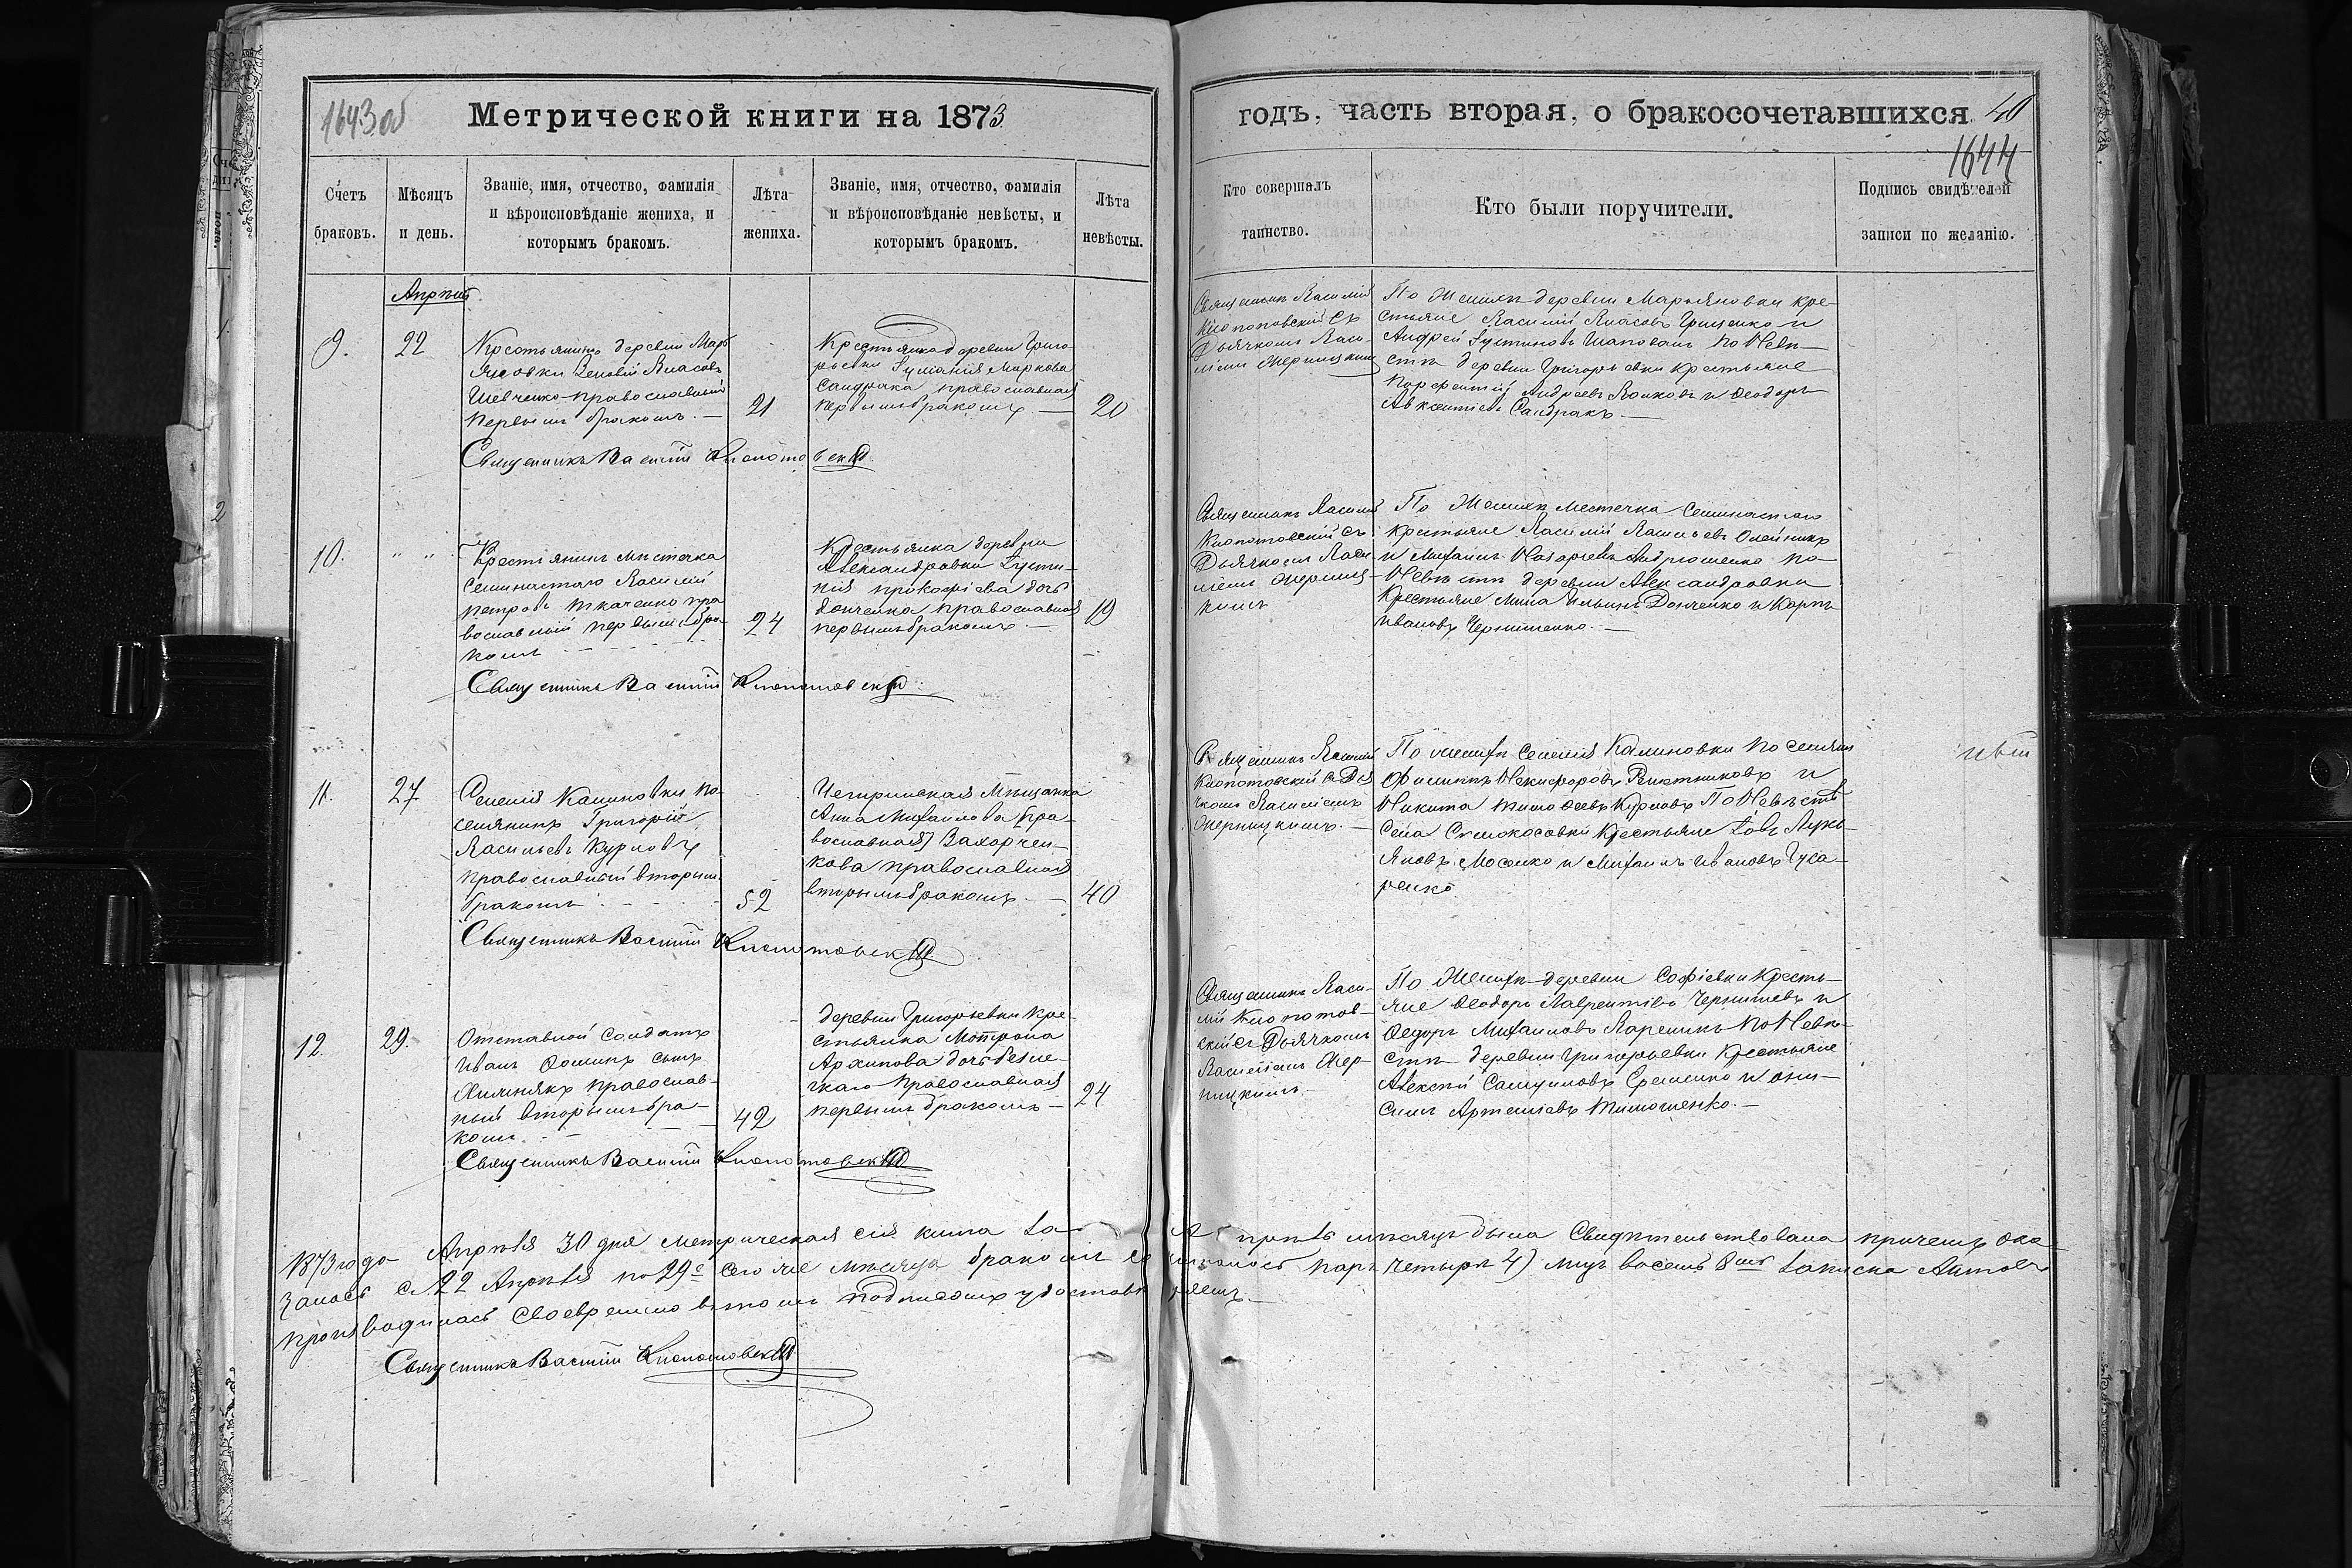 1643 об
Метрической книги на 1873
годъ, часть вторая, о бракосочетавшихся
40
1644
Счетъ браковъ.
Мѣсяцъ и день.
Званіе, имя, отчество, фамилія и вѣроисповѣданіе жениха, и которымъ бракомъ.
Лѣта жениха.
Званіе, имя, отчество, фамилія и вѣроисповѣданіе невѣсты, и которымъ бракомъ.
Лѣта невѣсты.
Кто совершалъ таинство.
Кто были поручители.
Подпись свидѣтелей записи по желанію.
Апрѣль
9.
22
Крестьянинъ деревни Марь
яновки Зеновій Власовъ
Шевченко православный
первымъ бракомъ. —
21
Крестьянка деревни Григо-
рьевки Іулianія Маркова
Сандрака православная
первымъ бракомъ —
20
Священникъ Василій
Клопотовскій съ
Дьячкомъ Васи-
ліемъ
По Женихѣ деревни Марьяновки кре-
стьяне Василій Власовъ Грищенко и
Андрей Іустиновъ Шаповалъ По Невѣ-
стѣ деревни Григорьевки крестьяне
Андреевъ Волковъ и Ѳеодоръ
Авксентіевъ Сандракъ —
Священникъ Василій Клопотовскій
10.
" "
Крестьянинъ мѣстечка
Семинастаго Василій
Петровъ Ткаченко пра
вославный первымъ бра-
комъ
24
Крестьянка деревни
Александровки Іусти-
нія Прокофіева дочь
Донченка православная
первымъ бракомъ. —
19
Священникъ Василій
Клопотовскій съ
Дьячкомъ Васи
ліемъ
По Женихѣ местечка Семинастаго
крестьяне Василій Васильевъ Олейникъ
и Михаилъ Назарьевъ Андрющенко по-
Невѣстѣ деревни Александровки
Крестьяне Мина Ильинъ Донченко и Карпъ
Ивановъ Чернишенко. —
Священникъ Василій Клопотовскій
11.
27.
Селенія Калиновки по-
селянинъ Григорій
Васильевъ Курловъ
православный вторымъ
бракомъ
52
Чигринская Мѣщанка
Анна Михайлова (пра-
вославная) Захарчен-
кова православная
вторымъ бракомъ. —
40
Священникъ Василій
Клопотовскій съ Дья
чкомъ Василіемъ
По женихѣ Селенія Калиновки поселяне
Филиппъ Никифоровъ и
Никита Тимоѳеевъ Курловъ По Невѣстѣ
Села крестьяне Іовъ Лукь-
яновъ Мосенко и Михаилъ Ивановъ Гуса-
ренко
Священникъ Василій Клопотовскій
12.
29.
Отставной Солдатъ
Иванъ Ѳоминъ сынъ
православ-
ный вторымъ бра-
комъ
42
деревни Григорьевки Кре-
стьянка Мотрона
Архипова дочь
православная
первымъ бракомъ —
24
Священникъ Васи-
лій Клопотов-
скій съ Дьячкомъ
Василіемъ
По Женихѣ деревни Софіевки Кресть-
яне Ѳеодоръ Лаврентіевъ Чернишевъ и
Ѳедоръ Михаиловъ По Невѣ-
стѣ деревни Григорьевки Крестьяне
Алексѣй Еременко и Они-
симъ Артеміевъ Тимошенко. —
Священникъ Василій Клопотовскій
1873 года Апрѣля 30 дня метрическая сія книга за Апрѣль мѣсяцъ была Свидѣтельствована причемъ ока-
залось с 22 Апрѣля по 29е сего же мѣсяца бракомъ паръ четыре 4) лицъ восемь 8мь записка Актовъ
производилась своевременно въ томъ подписомъ удостовѣряемъ. —
Священникъ Василій Клопотовскій